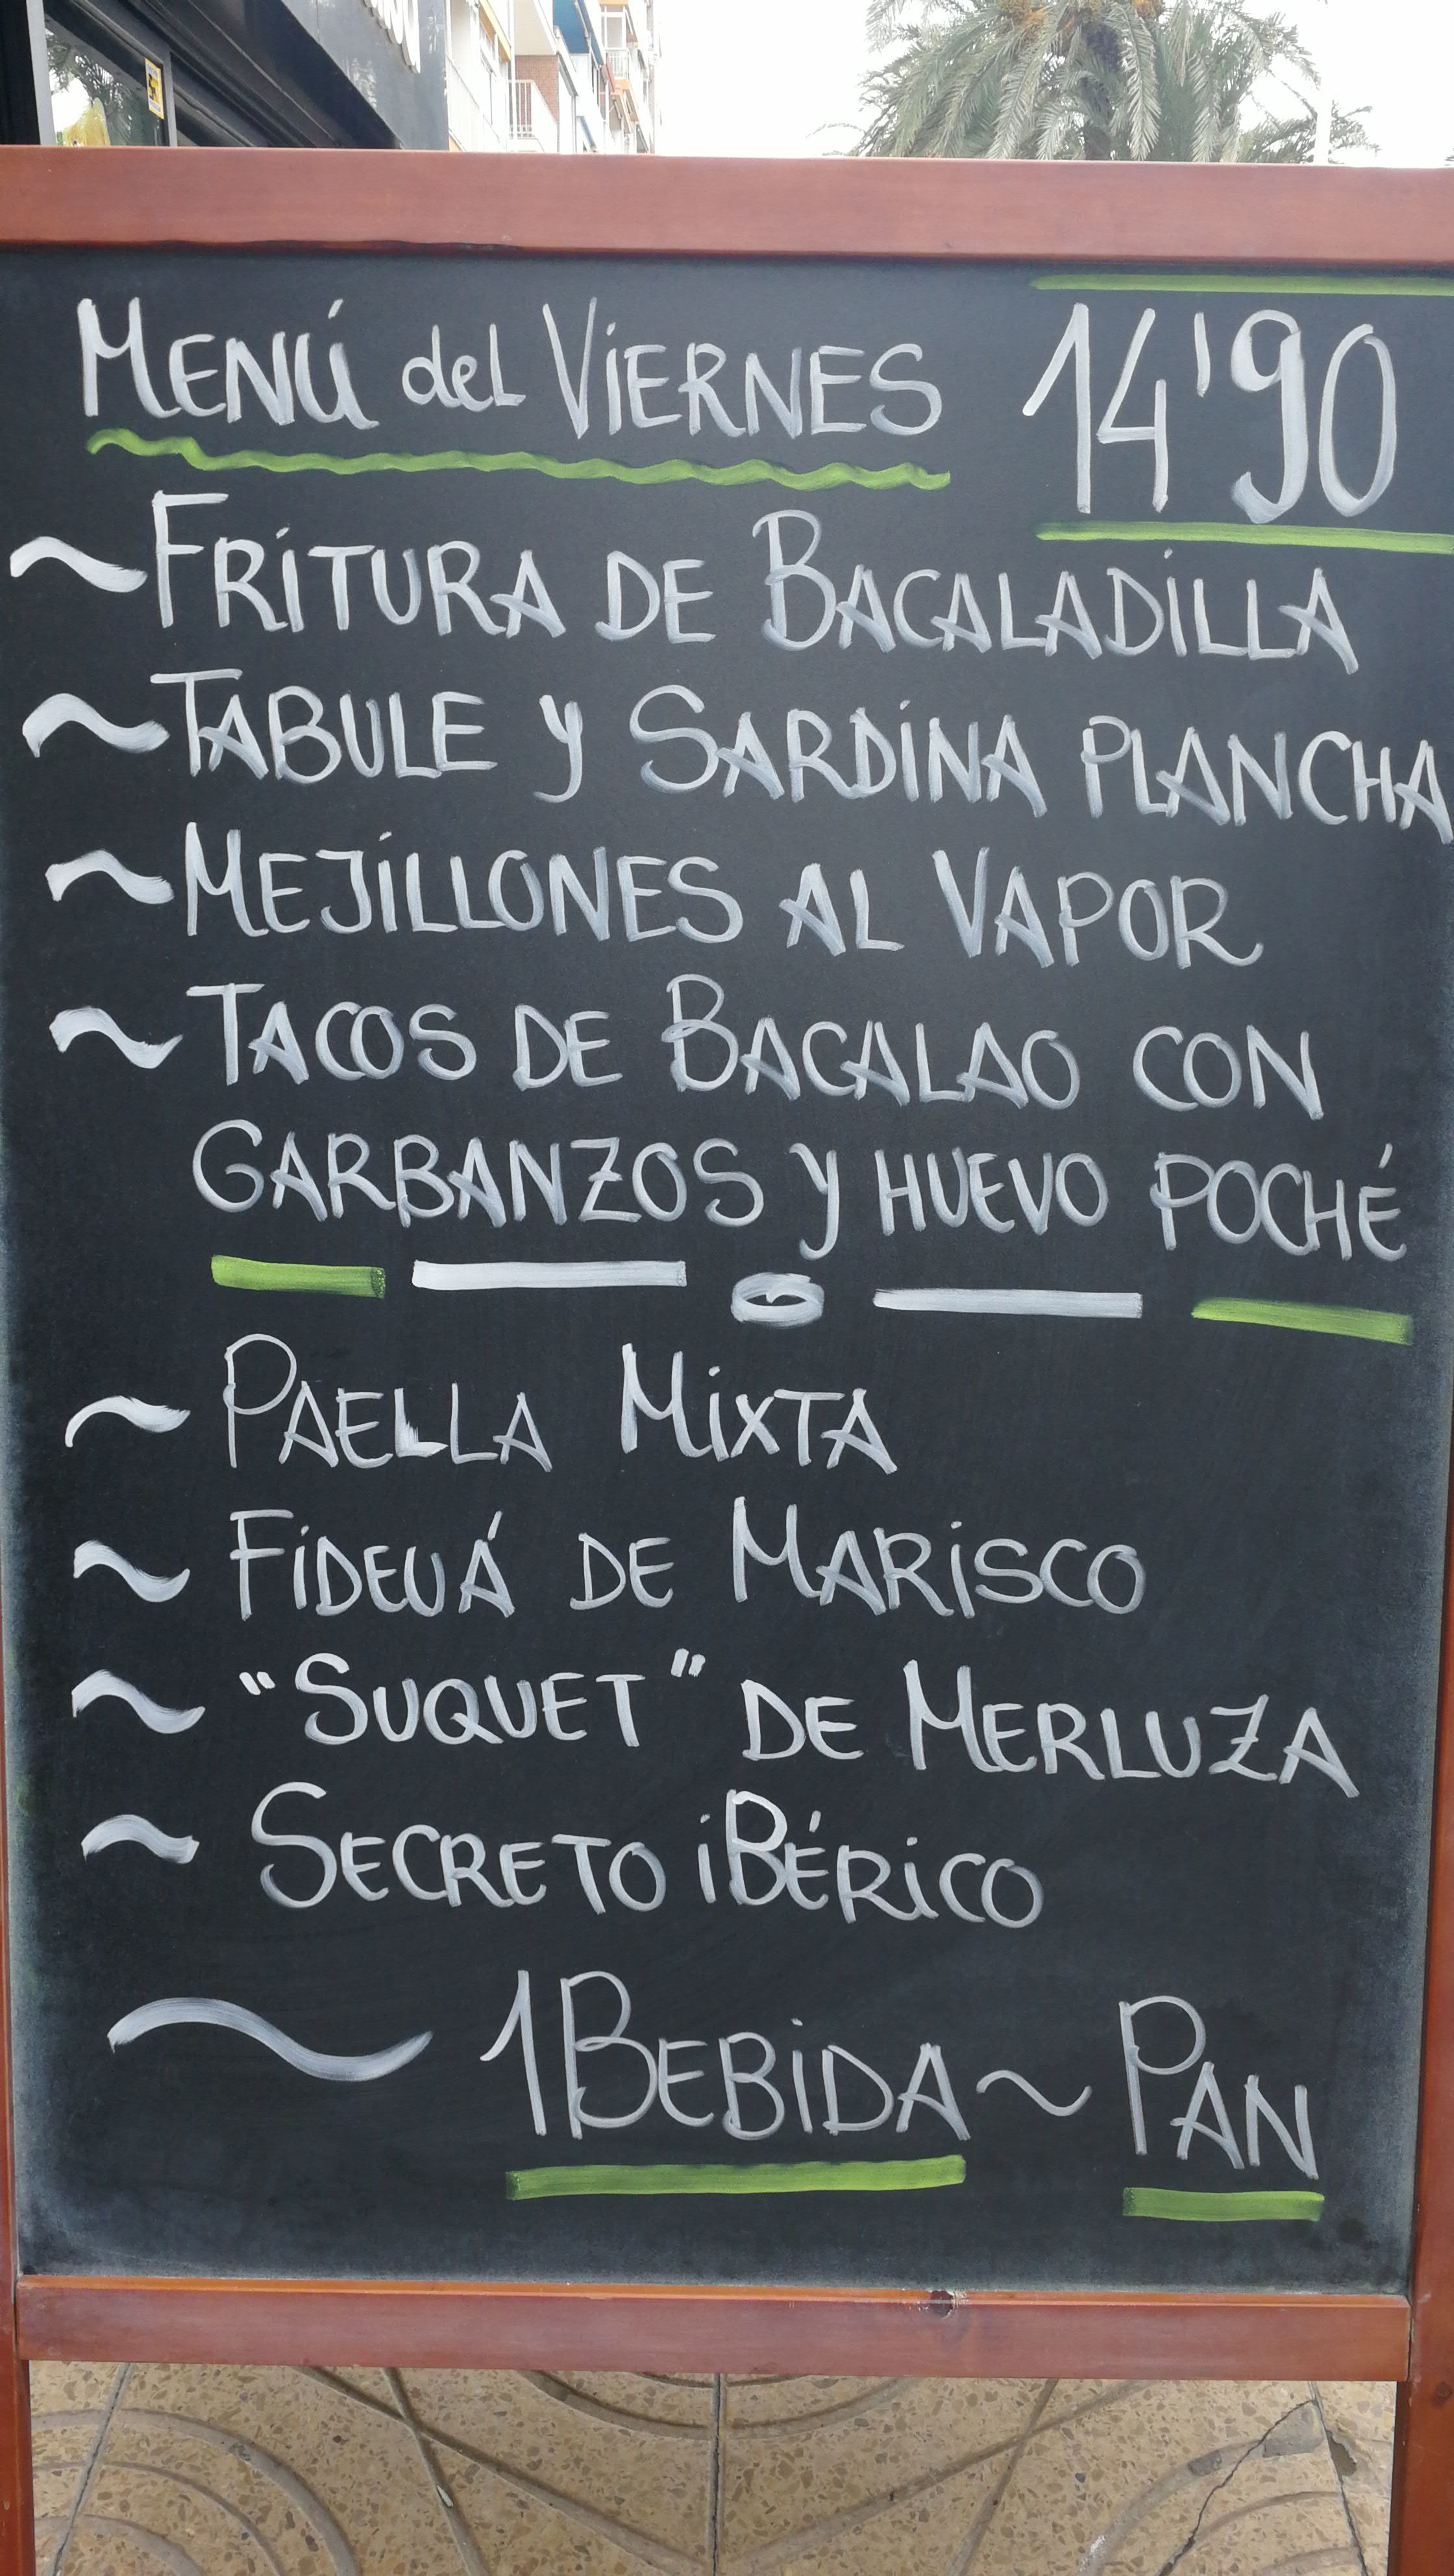 MENÚ del VIERNES 14'90
~FRITURA DE BACALADILLA
~TABULE Y SARDINA PLANCHA
~MEJILLONES AL VAPOR
~TACOS DE BACALAO CON
GARBANZOS Y HUEVO POCHÉ
~ PAELLA MIXTA
~ FIDEUÁ DE MARISCO
~ "SUQUET" DE MERLUZA
~ SECRETO IBÉRICO
~ 1 BEBIDA ~ PAN